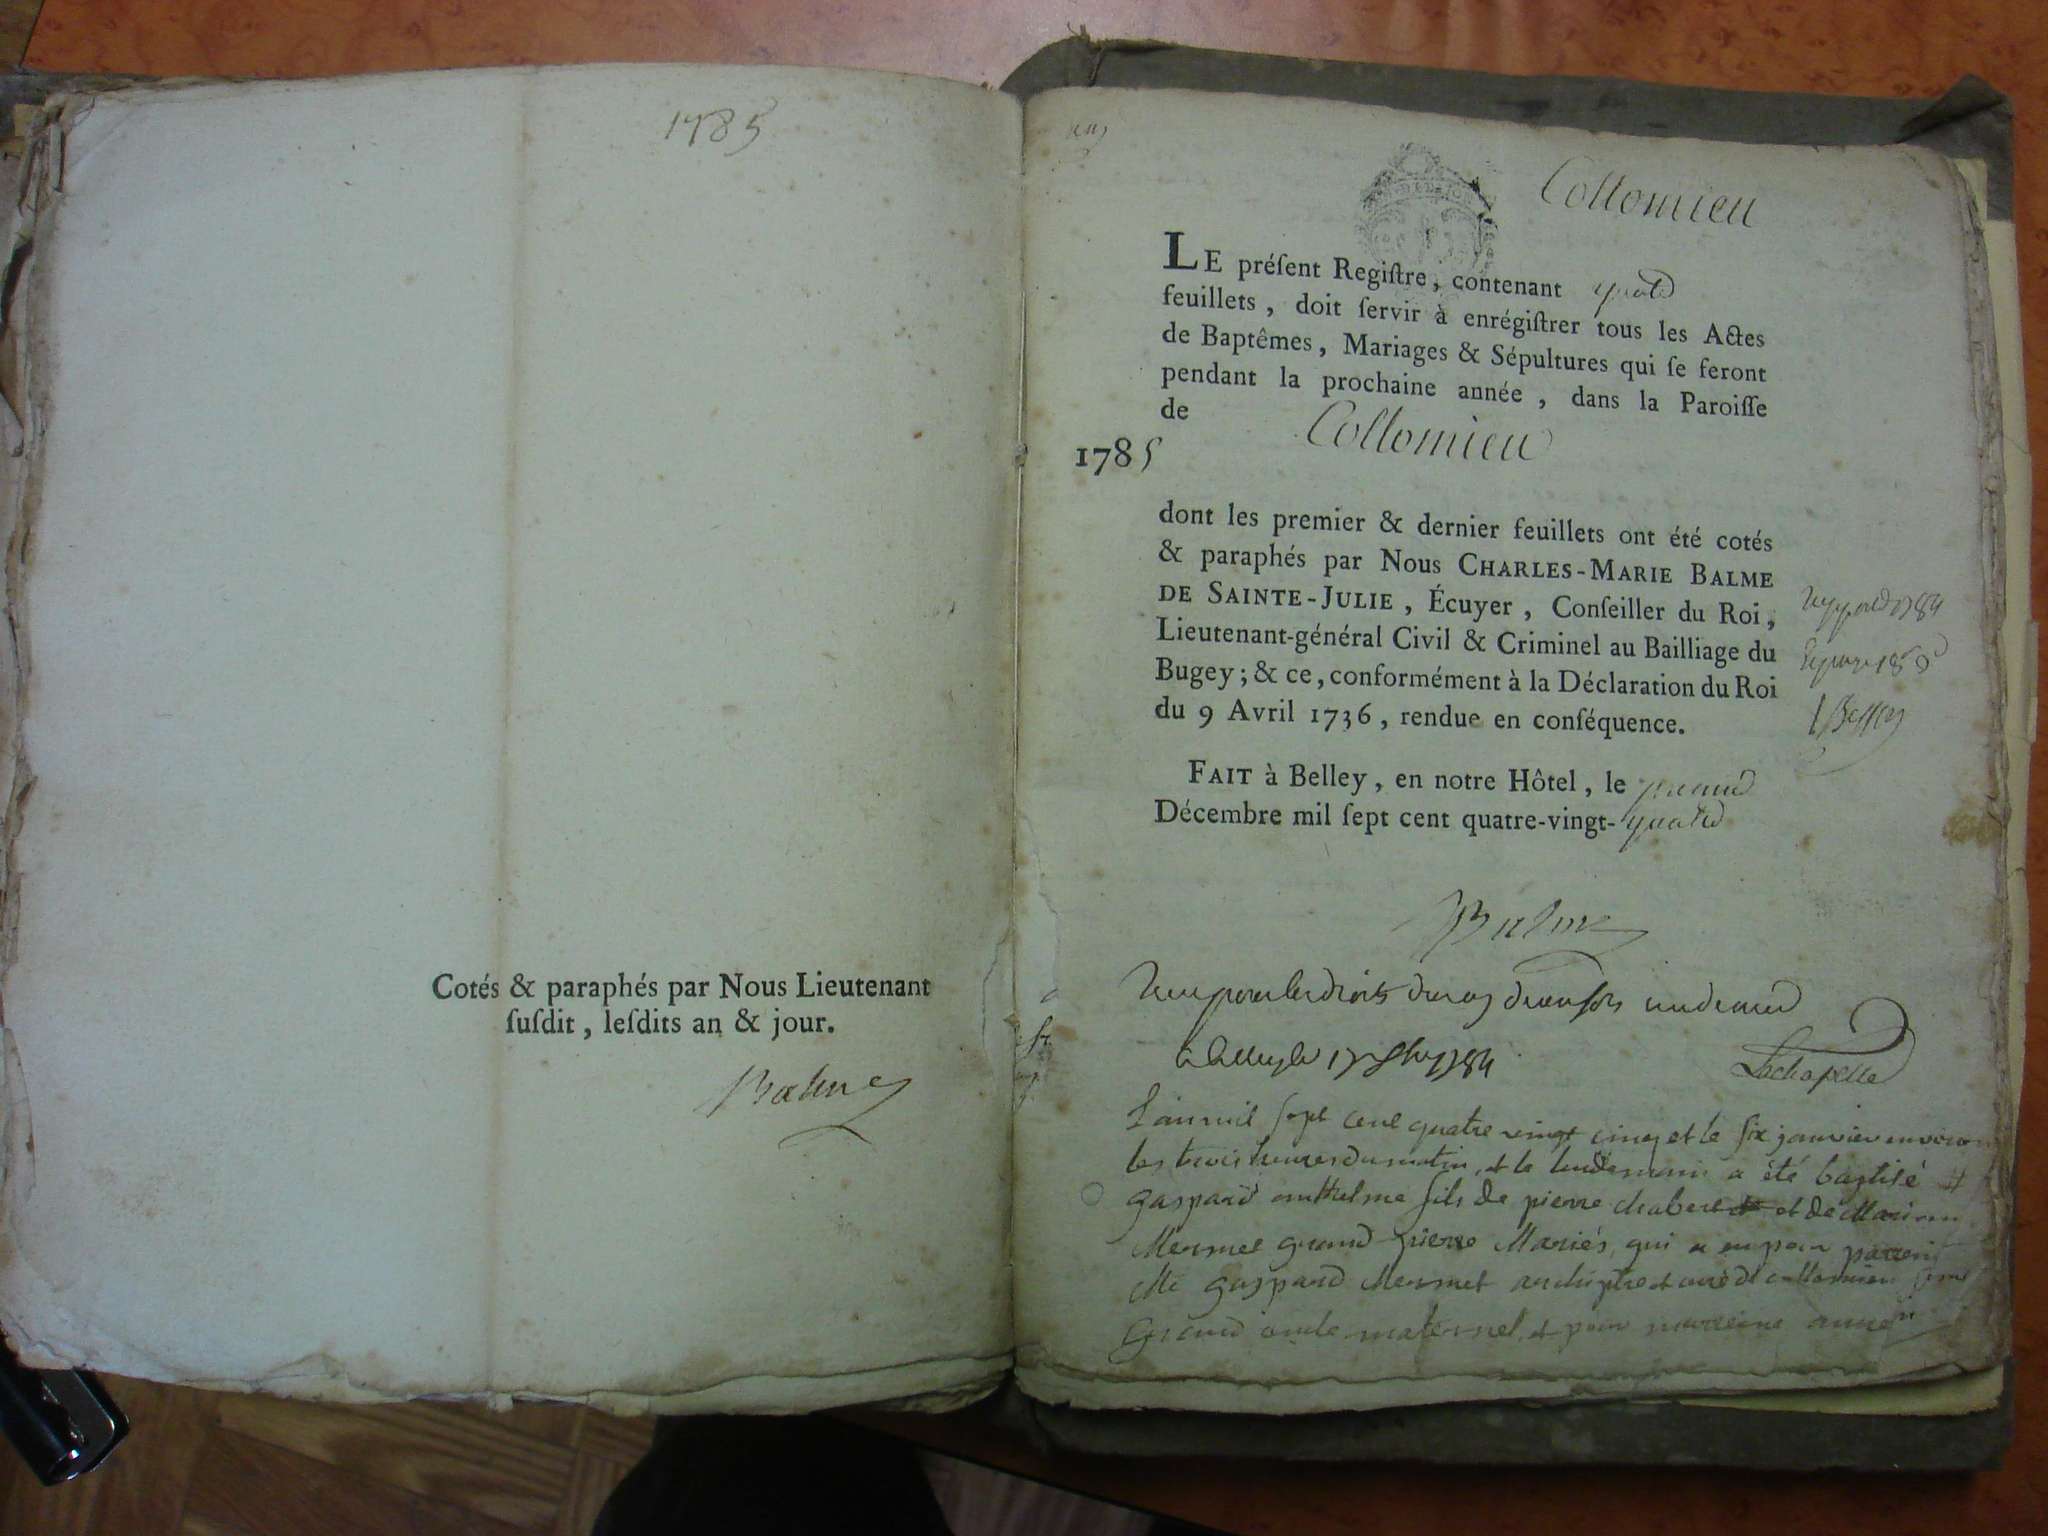 1785
Cotés & paraphés par Nous Lieutenant
ſuſdit, leſdits an & jour.
Balme
Collomieu
LE préſent Regiſtre, contenant quatre
feuillets, doit ſervir à enrégiſtrer tous les Actes
de Baptêmes, Mariages & Sépultures qui ſe feront
pendant la prochaine année, dans la Paroiſſe
de Collomieu
1785
dont les premier & dernier feuillets ont été cotés
& paraphés par Nous CHARLES-MARIE BALME
DE SAINTE-JULIE, Écuyer, Conſeiller du Roi,
Lieutenant-général Civil & Criminel au Bailliage du
Bugey; & ce, conformément à la Déclaration du Roi
du 9 Avril 1736, rendue en conſéquence.
FAIT à Belley, en notre Hôtel, le premier
Décembre mil ſept cent quatre-vingt-quatre
Balme
Reçu pour les droits
à Belley le 1784
Lachapelle
L'an mil sept cent quatre vingt cinq et le six janvier environ
les trois heures du matin, et le lendemain a été baptisé
gaspard anthelme fils de pierre chabert et de
Mermet grand pierre Mariés, qui a eu pour parrein
Me gaspard Mermet archiptre et curé de collomieu
Grand oncle maternel, et pour marreine anne